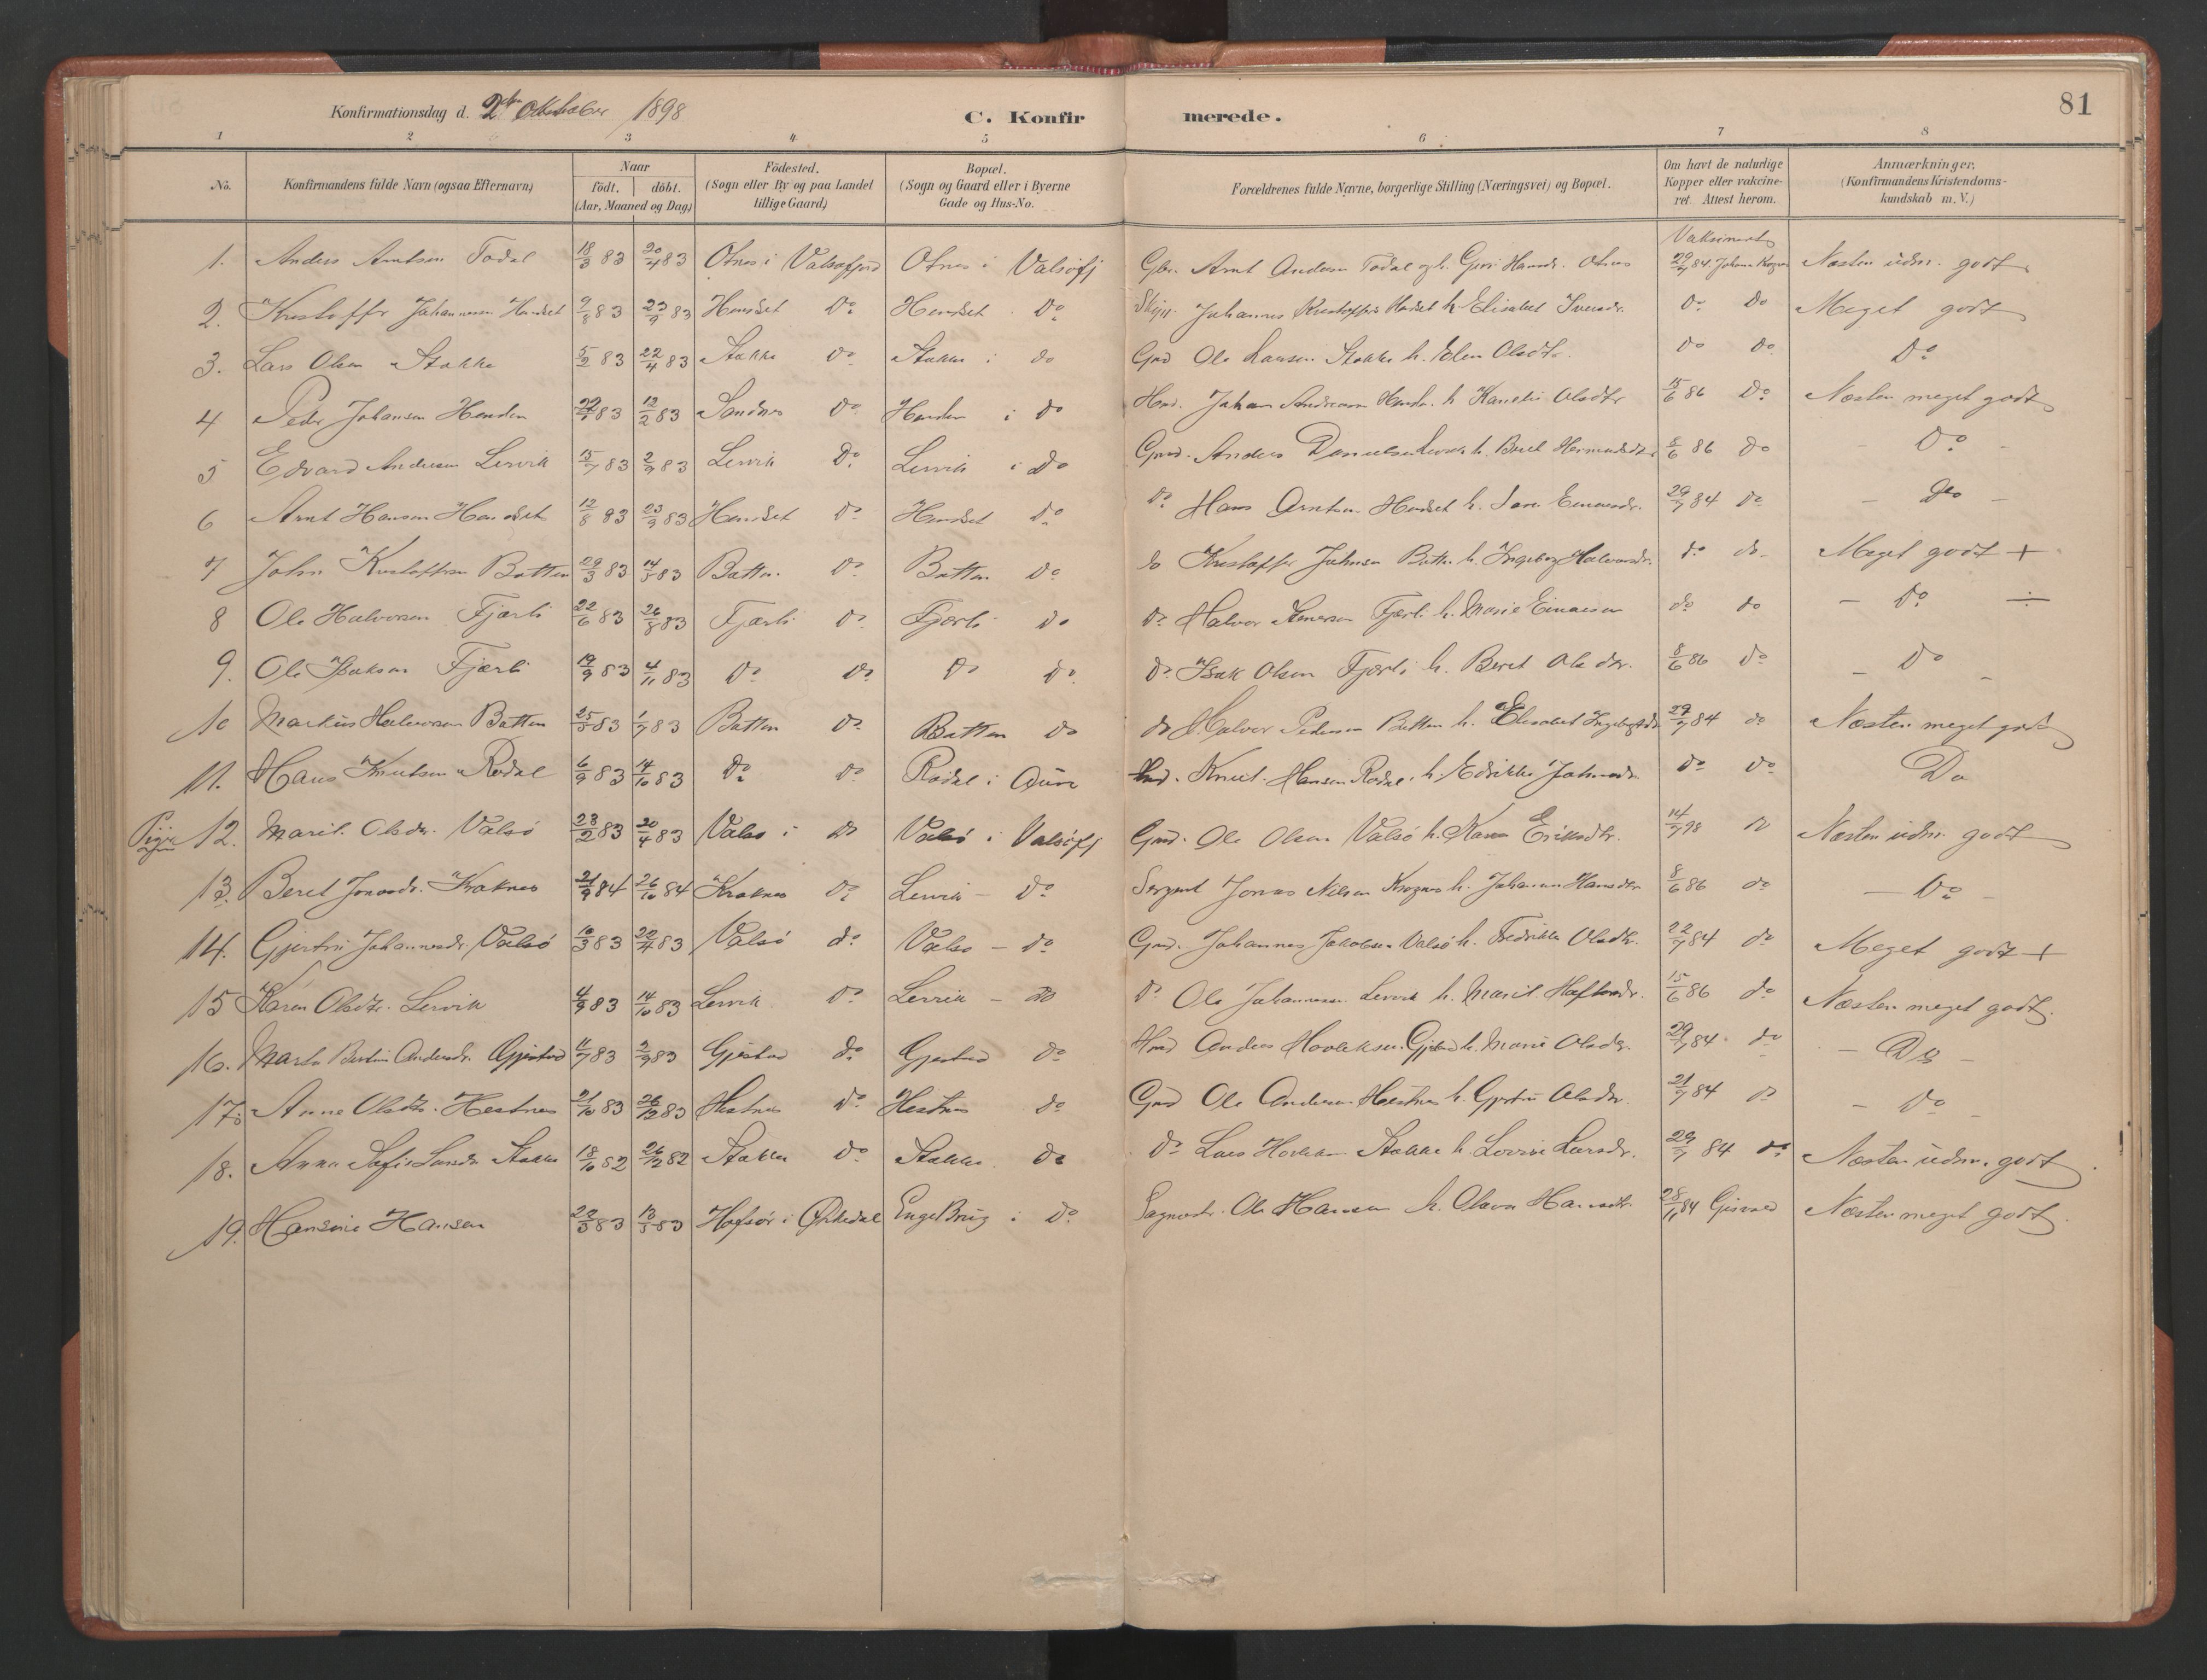 81
Konfirmationsdag d. 2den Oktober 1898 C. Konfirmerede.
1 2 3 4 5 6 7 8
No. Konfirmandens fulde Navn (ogsaa Efternavn) Naar födt. döbt. (Aar, Maaned og Dag) Födested. (Sogn eller By og paa Landet tillige Gaard) Bopæl. (Sogn og Gaard eller i Byerne Gade og Hus-No. Forældrenes fulde Navne, borgerlige Stilling (Næringsvei) og Bopæl. Om havt de naturlige Kopper eller vakcineret. Attest herom. Anmærkninger. (Konfirmandens Kristendomskundskab m. V.)
1. Anders Arntsen Todal 18/3 83 20/4 83 Otnes i Valsøfjord Otnes i Valsøfj Gbr. Arnt Andersen Todal og h. Guri Hansdr. Otnes Vaksinert 29/7 84 Johan Næsten udm. godt
2. Kristoffer Johannesen Hendset 9/8 83 23/9 83 Hendset Do Hendset Do Johannes Kristoffers Hendset h. Elisabet Iversdr. Do Do Meget godt
3. Lars Olsen Stokke 5/2 83 22/4 83 Stokke Do Stokke i do Gmd Ole Larsen Stokke h. Elen Olsdtr. Do Do Do
4 Peder Johansen Henden 83 12/2 83 Sandnes Do Henden i do Johan Andreasen Henden h. Olsdtr 15/6 86 Do Næsten meget godt
5 Edvard Andersen Lervik 15/7 83 2/9 83 Lervik Do Lervik i Do Gmd. Anders Danielsen Lervik h. Beret 8/6 86 do - Do -
6 Arnt Hansen Hendset 12/8 83 23/9 83 Hendset Do Hendset Do Do Hans Arntsen Hendset h. 29/7 84 Do - Do -
7 John Kristoffersen Botten 29/3 83 14/5 83 Botten Do Botten Do do Kristoffer Johnsen Botten h. Ingeborg Halvorsdr. do do Meget godt +
8 Ole Halvorsen Fjærli 22/6 83 26/8 83 Fjærli Do Fjærli do Do Halvor Fjærli h. Marie do do - Do ÷
9. Ole Isaksen Fjærli 19/9 83 4/11 83 Do Do Do Do Do Isak Olsen Fjærli h. Beret Olsdtr. 8/6 86 Do - Do -
10 Markus Halvorsen Botten 25/5 83 1/7 83 Botten Do Botten Do do Halvor Pedersen Botten h. Elisabet 29/7 84 do Næsten meget godt
11. Hans Knutsen Rodal 6/9 83 14/10 83 Do Do Rodal i Aure Knut Hansen Rodal h. Do Do Do
Piger 12. Marit Olsdr. Valsö 23/2 83 20/4 83 Valsö i Do Valsö i Valsöfj Gmd. Ole Olsen Valsö h. Karen Eriksdtr. 14/7 98 Do Næsten udm. godt
13. Beret Jonasdr. Kroknes 21/9 84 26/10 84 Kroknes Do Lervik - Do Sergent Jonas Nilsen h. Johanna Hansdtr 8/6 86 do - Do -
14. Gjertrü Johannesdr. Valsö 10/3 83 22/4 83 Valsö do Valsö - do Gmd. Johannes Jakobsen Valsö h. Fredrikke Olsdtr. 22/7 84 do Meget godt +
15 Karen Olsdtr. Lervik 4/9 83 14/10 83 Lervik Do Lervik - Do Do Ole Johannesen Lervik h. Marit 15/6 86 do Næsten meget godt.
16. Marta Andersdr. Gjøstad 11/7 83 2/9 83 Gjøstad do Gjøstad do Anders h. Marie Olsdtr. 29/7 84 do - Do -
17. Anne Olsdtr. Hestnes 21/10 83 26/12 83 Hestnes Do Hestnes do Gmd Ole Andersen Hestnes h. Gjertrü Olsdtr. 21/7 84 Do - Do -
18. Anna Sofie Larsdr Stokke 18/10 82 26/12 82 Stokke Do Stokke Do Do Lars Stokke h. Lovise Larsdr. 29/7 84 do Næsten udm. godt
19. Hansine Hansen 22/3 83 13/5 83 i Orkedal Enge Brug i Do Ole Hansen h. Olava Hansdtr. 28/11 84 Næsten meget godt.